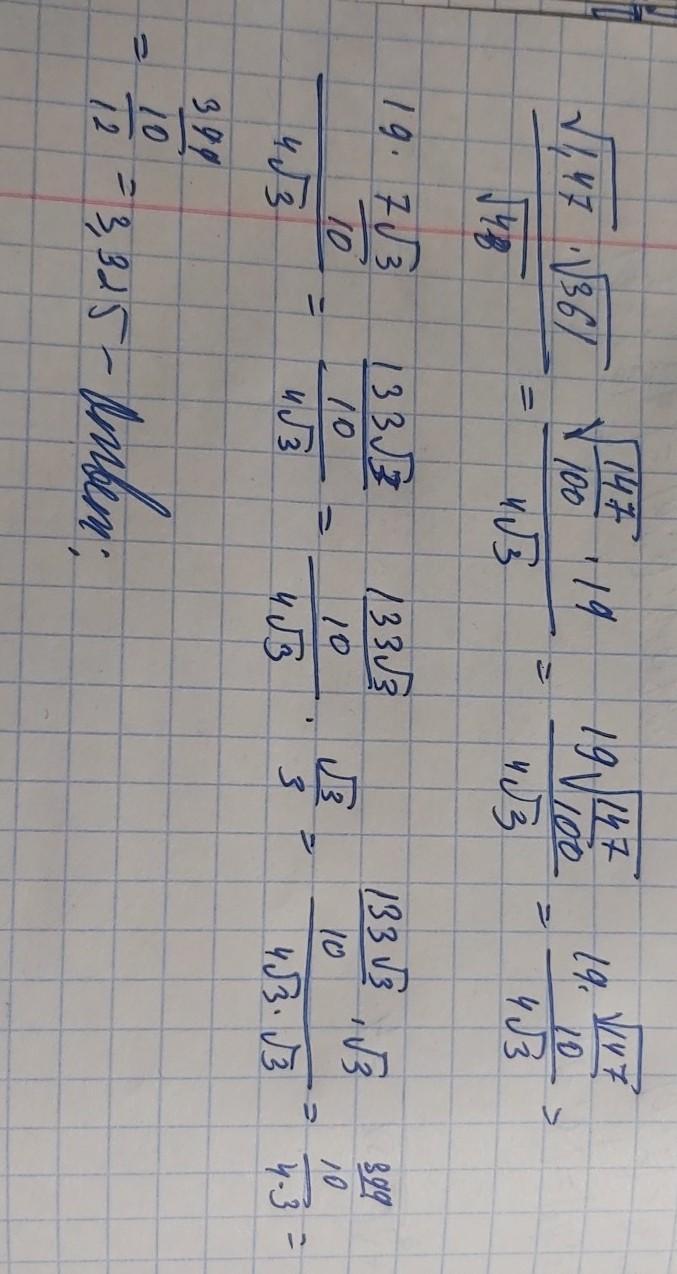 √1,47 · √361 / √48 = √(147/100) · 19 / 4√3 = 19√(147/100) / 4√3 = 19 · √147/10 / 4√3 =
19 · 7√3/10 / 4√3 = 133√3/10 / 4√3 = 133√3/10 / 4√3 · √3/3 = 133√3/10 · √3 / 4√3 · √3 = 399/10 / 4·3 =
= 399/10 / 12 = 3,325 – Ответ;